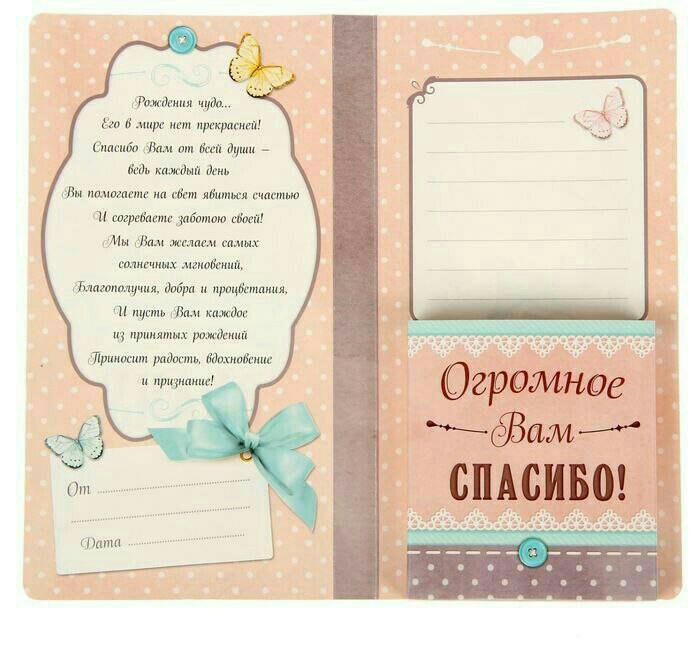 Рождения чудо...
Его в мире нет прекрасней!
Спасибо Вам от всей души –
ведь каждый день
Вы помогаете на свет явиться счастью
И согреваете заботою своей!
Мы Вам желаем самых
солнечных мгновений,
Благополучия, добра и процветания,
И пусть Вам каждое
из принятых рождений
Приносит радость, вдохновение
и признание!
От
Дата
Огромное
Вам
СПАСИБО!